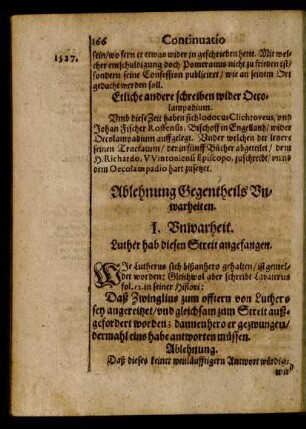 166 Continuatio
1527.
sein/wo fern er etwas wider jn geschrieben hette. Mit wel-
cher entschuldigung doch Pomeranus nicht zu frieden ist/
sondern seine Confession publicirt/ wie an seinem Ort
gedacht werden soll.
Etliche andere schreiben wider Oeco-
lampadium.
Vmb diese Zeit haben sich Iodocus Clichtoveus/ vnd
Johan Fischer Roffensis, Bischoff in Engelland/ wider
Oecolampadium auffgelegt. Vnder welchen der letzere
seinen Tractatum/ der in fünff Bücher abgeteilet/ dem
H. Richardo, VVintoniensi Episcopo, zuschreibt/ vnnd
dem Oecolampadio hart zusetzt.
Ablehnung Gegentheils Vn-
warheiten.
I. Vnwarheit.
Luther hab diesen Streit angefangen.
WIe Lutherus sich bißanhero gehalten/ ist gemel-
det worden: Gleichwol aber schreibt Lavaterus
fol. 12. in seiner Histori:
Daß Zwinglius zum offtern von Luthero
sey angereitzet/ vnd gleichsam zum Streit auß-
gefordert worden: dannenhero er gezwungen/
dermahl eins habe antworten müssen.
Ablehnung.
Daß dieses keiner weitläufftigern Antwort würdig: